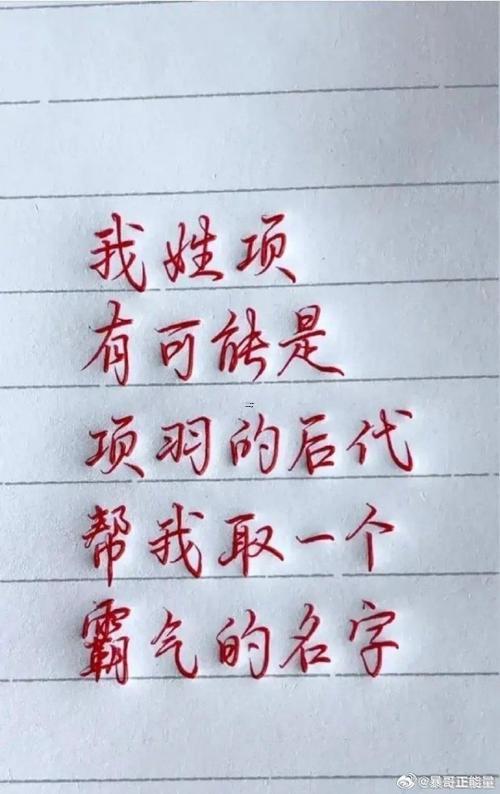 我姓项
有可能是
项羽的后代
帮我取一个
霸气的名字
@暴哥正能量